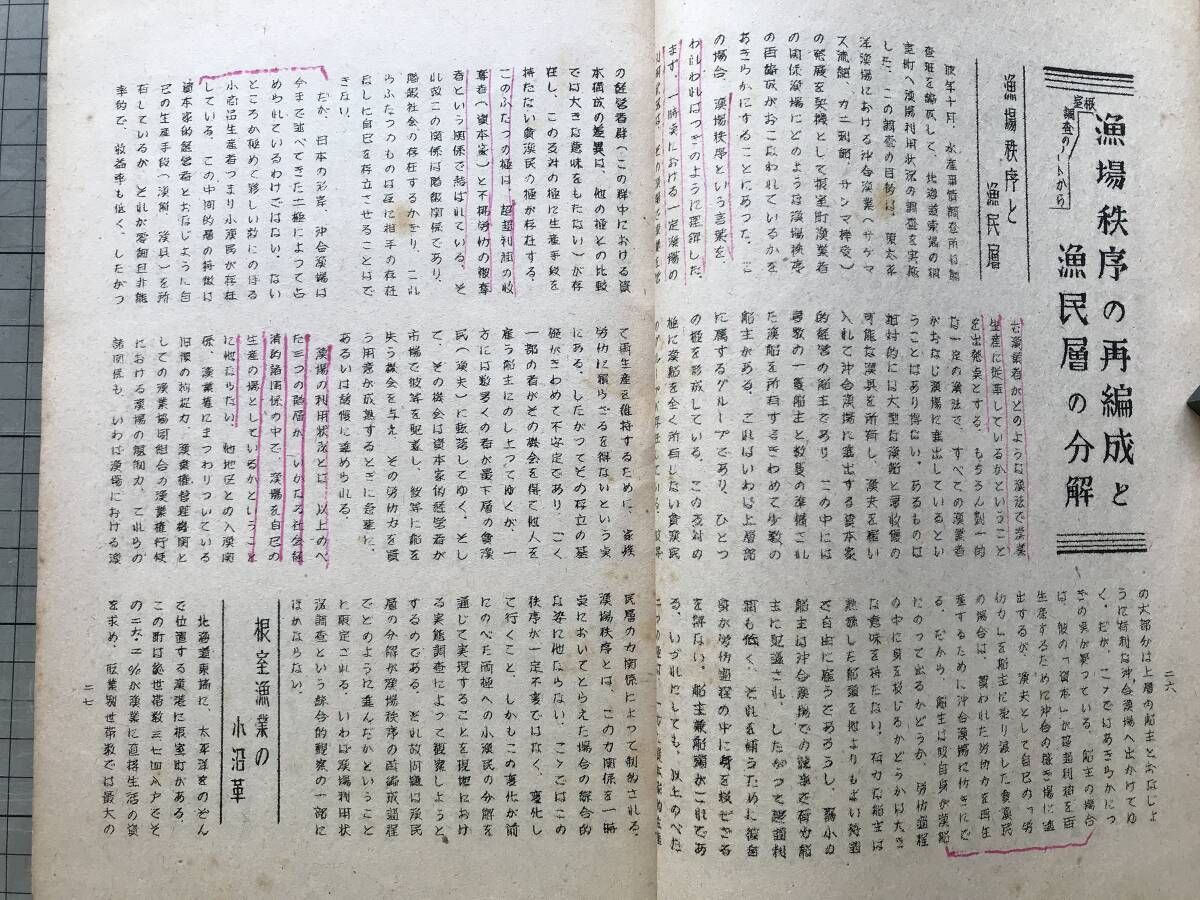 漁場秩序の再編成と
漁民層の分解
根室
調査のノートから
漁場秩序と
漁民層
昨年十月、水産事情調査所は調
査班を編成して、北海道東端の根
室町へ漁場利用状況の調査を実施
した。この調査の目的は、東太平
洋漁場における沖合漁業へサケマ
ス流網、カニ刺網、サンマ棒受)
の発展を契機として根室町漁業者
の関係漁場にどのような漁場秩序
の再編成がおこなわれているかを
あきらかにすることにあった。こ
の場合、漁場秩序という言葉を、
われわれはつぎのように理解した。
まず、一時点における一定漁場の
利用状況は、
右漁業者がどのような漁法で漁業
生産に従事しているかということ
を出発点とする。もちろん劃一的
な一定の漁法で、すべての漁業者
がおなじ漁場に進出しているとい
うことはあり得ない。あるものは
相対的には大型な漁船と高収獲の
可能な漁具を所有し、漁夫を雇い
入れて沖合漁場に進出する資本家
的経営の船主であり、この中には
専数の一隻船主と数隻の準備され
た漁船を所有するきわめて少数の
船主がある。これはいわば上層部
に属するグループであり、ひとつ
の極を形成している。この反対の
極に漁船を全く所有しない貧漁民
の大部分は上層の船主とおなじよ
うに有利な沖合漁場へ出かけてゆ
く。だが、こゝではあきらかにつ
ぎの点が異っている。船主の場合
は、彼の「資本」が超過利潤を再
生産するために沖合の稼ぎ場に進
出するが、漁夫として自己の「労
働力」を船主に売り渡した貧漁民
の場合は、買われた労働力を再生
産するために沖合漁場に行きにで
る。だから、船主は彼自身が漁船
の中に乗って出るかどうか、労働過程
の中に身を投じるかどうかは大き
な意味を持たない。有力な船主は
熟練した船頭を他よりもよい待遇
で自由に雇うであろうし、弱小の
船主は沖合漁場での競争で有力船
主に圧迫され、したがって超過利
潤も低く、それを補うために彼自
身が労働過程の中に身を投ぜざる
を得ない。船主兼船頭がこれであ
る。いづれにしても、以上のべた
二六
の経営者群(この群中における資
本構成の差異は、他の極との比較
では大きな意味をもたない)が存
在し、この反対の極に生産手段を
持たない貧漁民の極が存在する。
このふたつの極は、超過利潤の収
奪者(資本家)と不払労働の被奪
者という関係で結ばれている。そ
れ故この関係は階級関係であり、
階級社会の存在するかぎり、これ
らふたつのものは互に相手の存在
なしに自己を存立させることはで
きない。
だが、日本の沿岸、沖合漁場は
今まで述べてきた二極によって占
められているわけではない。ない
ところか極めて夥しい数にのぼる
小商品生産者つまり小漁民が存在
している。この中間的層の特徴は
資本家的経営者とおなじように自
己の生産手段(漁船、漁具)を所
有しているが、それが零細且非能
率的で、収益率も低く、したがっ
て再生産を維持するために、家族
労働に頼らざるを得ないという点
にある。したがってその存立の基
礎がきわめて不安定であり、ごく
一部の者がその機会を得て他人を
雇う船主にのし上ってゆくが、一
方には数多くの者が最下層の貧漁
民(漁夫)に転落してゆく。そし
て、その機会は資本家的経営者が
市場で彼等を圧迫し、彼等に船を
失う機会を与え、その労働力を買
う用意が成熟するときに急激に、
あるいは緩慢に進められる。
漁場の利用状況とは、以上のべ
た三つの階層が、いかなる社会経
済的諸関係の中で、漁場を自己の
生産の場としているかということ
に他ならない。他地区との入漁関
係、漁業権にまつわりついている
旧慣の拘束力、漁業権管理機関と
しての漁業協同組合の漁業権行使
における漁場の規制力、これらの
諸関係も、いわば漁場における漁
民層の力関係によって制約される。
漁場秩序とは、この力関係を一時
点においてとらえた場合の綜合的
な姿に他ならない。こゝではこの
秩序が一定不変ではなく、変化し
て行くこと、しかもこの変化が前
にのべた両極への小漁民の分解を
通じて実現することを現地におけ
る実態調査によって観察しようと
するのである。それ故問題は漁民
層の分解が漁場秩序の再編成過程
でどのように進んだかということ
に限定される。いわば漁場利用状
況調査という綜合的観察の一部に
ほかならない。
根室漁業の
小沿革
北海道東端に、太平洋をのぞん
で位置する漁港に根室町がある。
この町は総世帯数三七四八戸でそ
の二六・二%が漁業に直接生活の資
を求め、産業別世帯数では最大の
二七